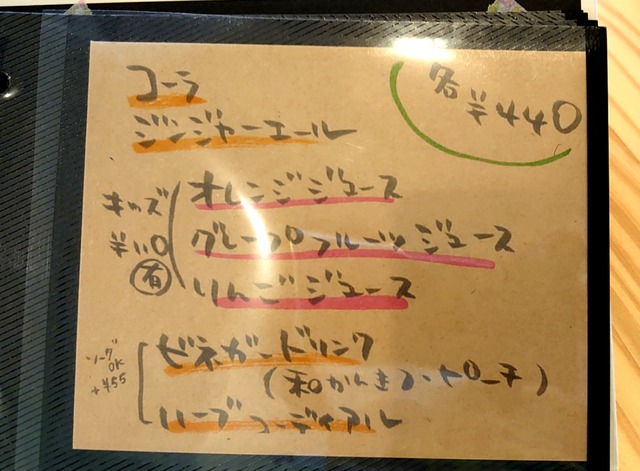 コーラ
各¥440
ジンジャーエール
キッズ
¥110
有
オレンジジュース
グレープフルーツジュース
りんごジュース
ソーダ
OK
+¥55
ビネガードリンク
(和かんきつ・ピーチ)
ハーブコーディアル